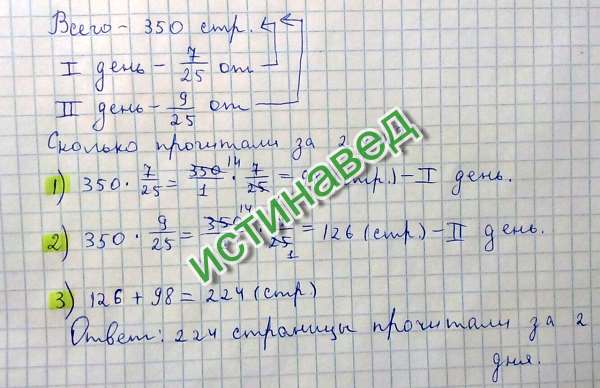 Всего - 350 стр.
I день - 7/25 от
II день - 9/25 от
Сколько прочитали за 2
1) 350 · 7/25 = 350/1 14 · 7/25 = стр.) - I день.
2) 350 · 9/25 = 350 14 · 25 1 = 126 (стр.) - II день.
3) 126 + 98 = 224 (стр)
Ответ: 224 страницы прочитали за 2
дня.
истинавед